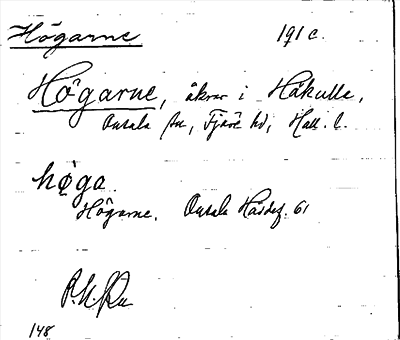 Högarne 191 c.
Högarne, åkrar i Håkulle,
Onsala sn, Fjäre hd, Hall. l.
høga
Högarne. Onsala Häsdef. 61
148